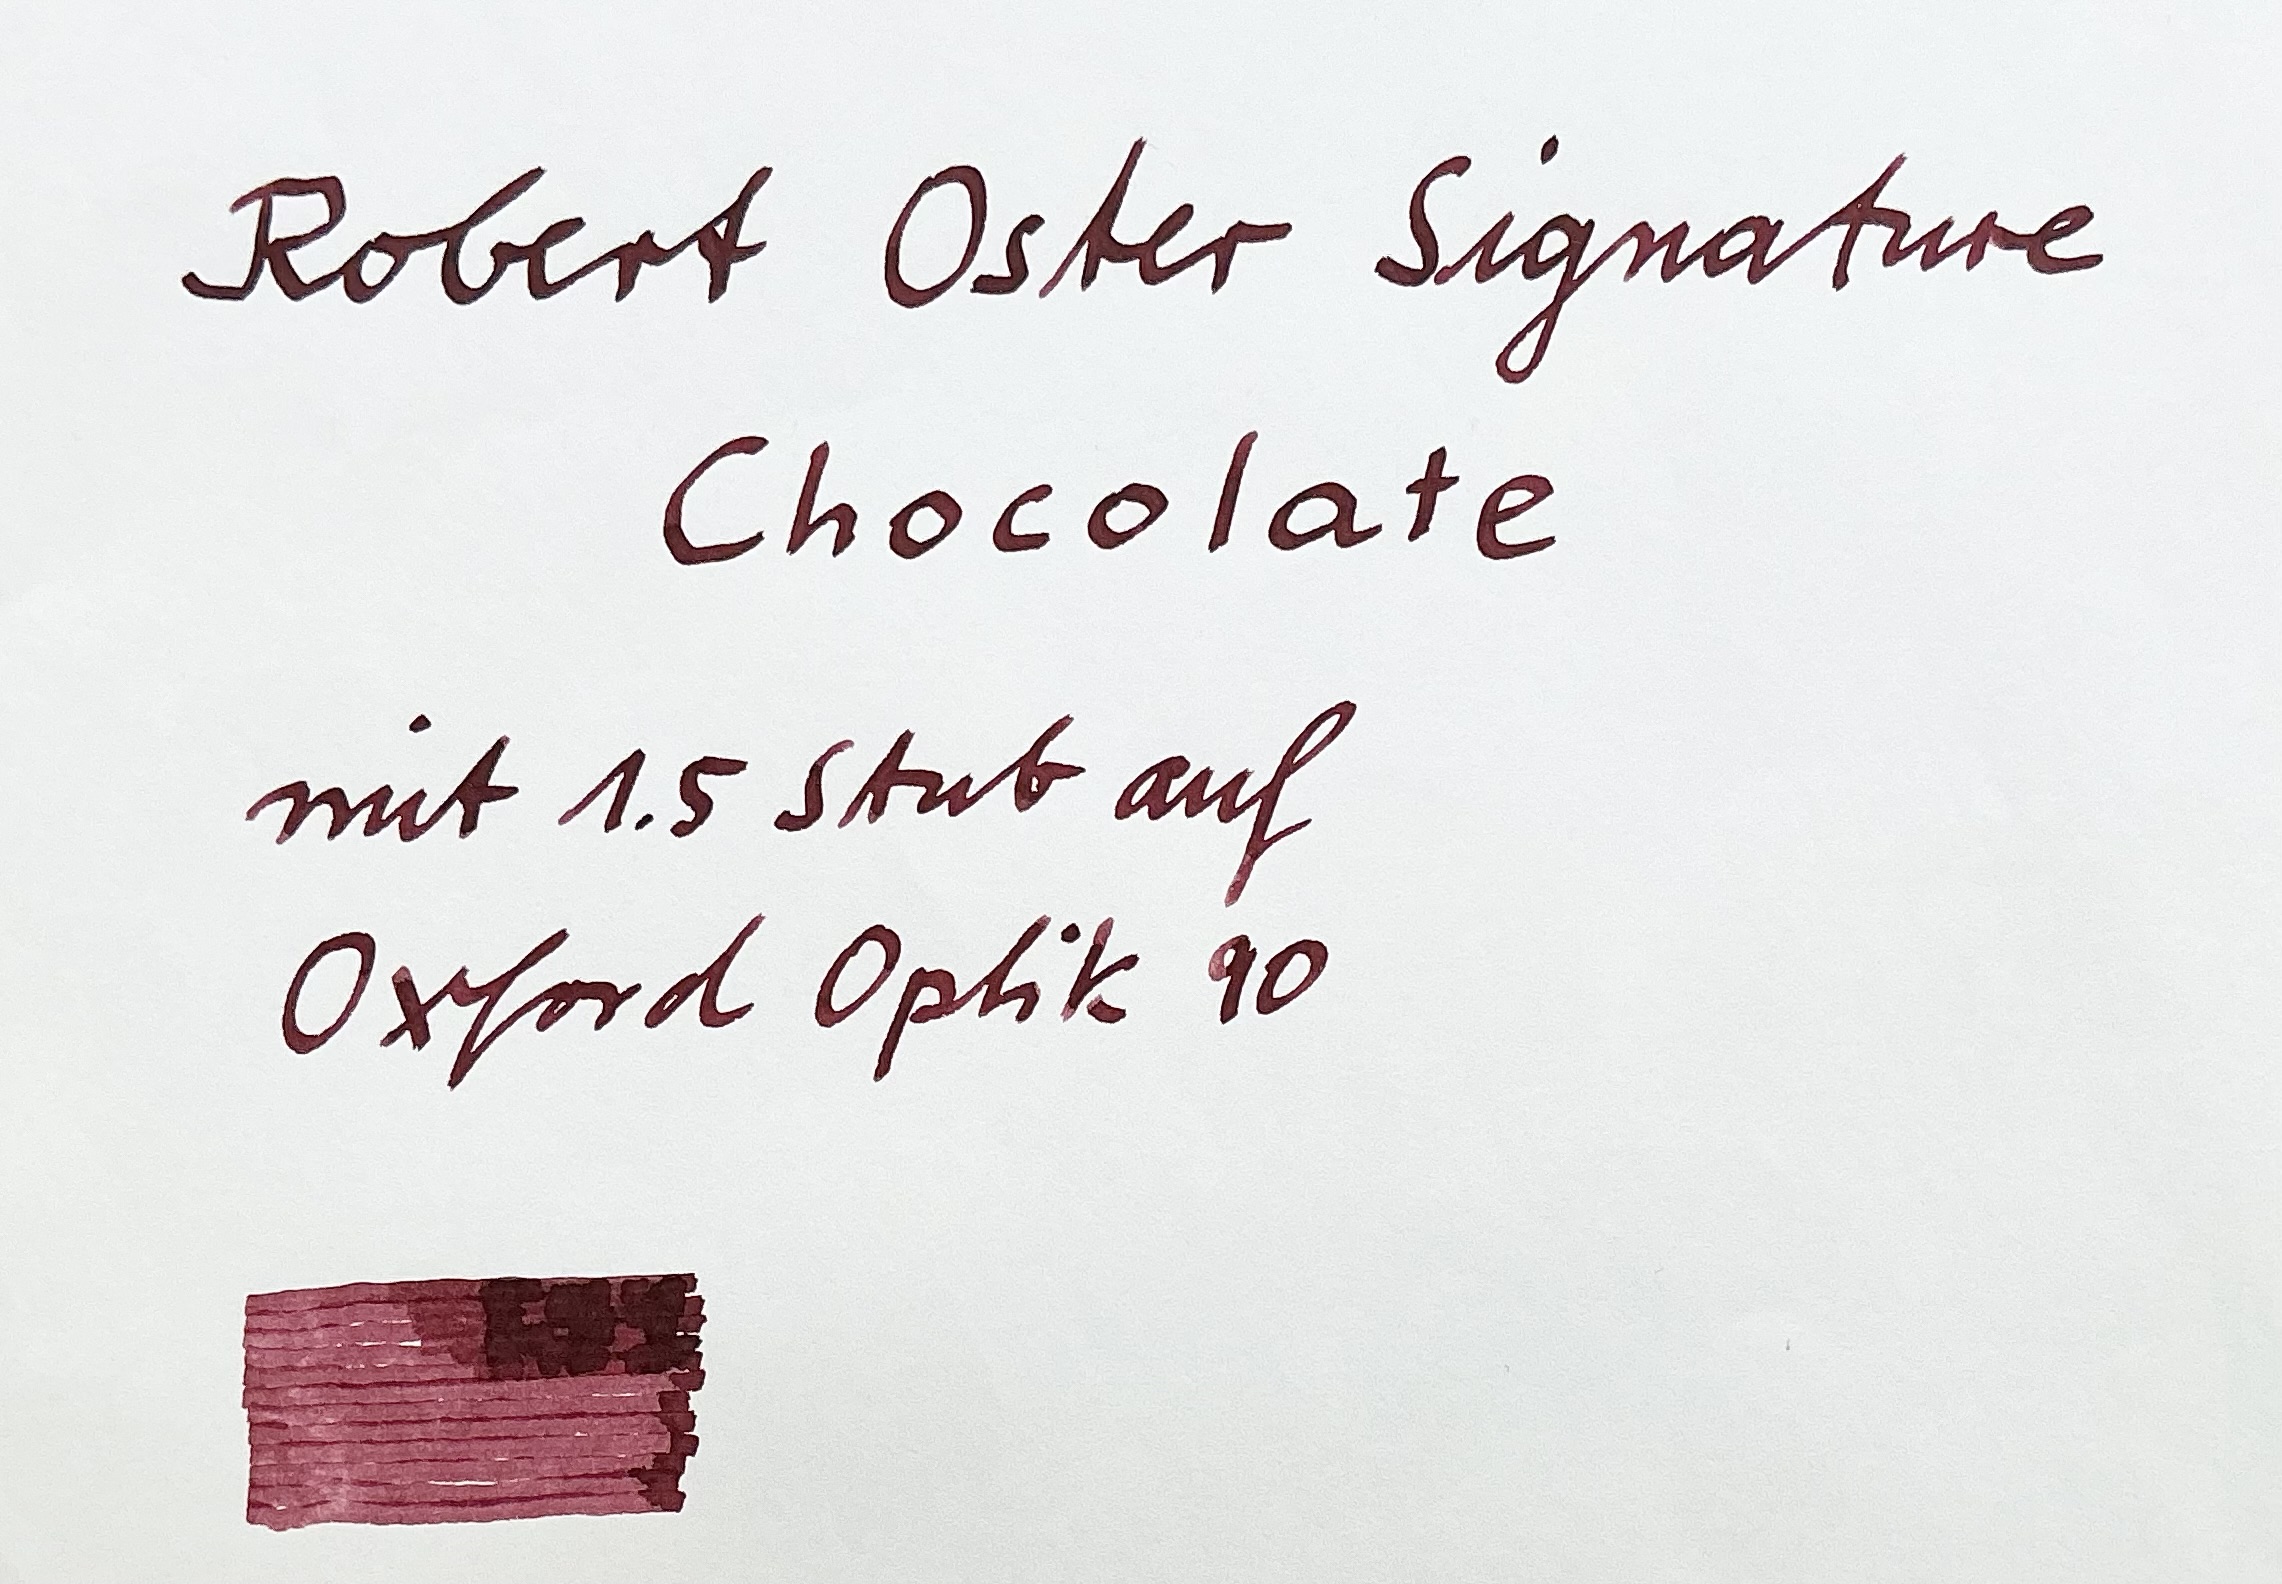 Robert Oster Signature
Chocolate
mit 1.5 Stub auf
Oxford Optik 90